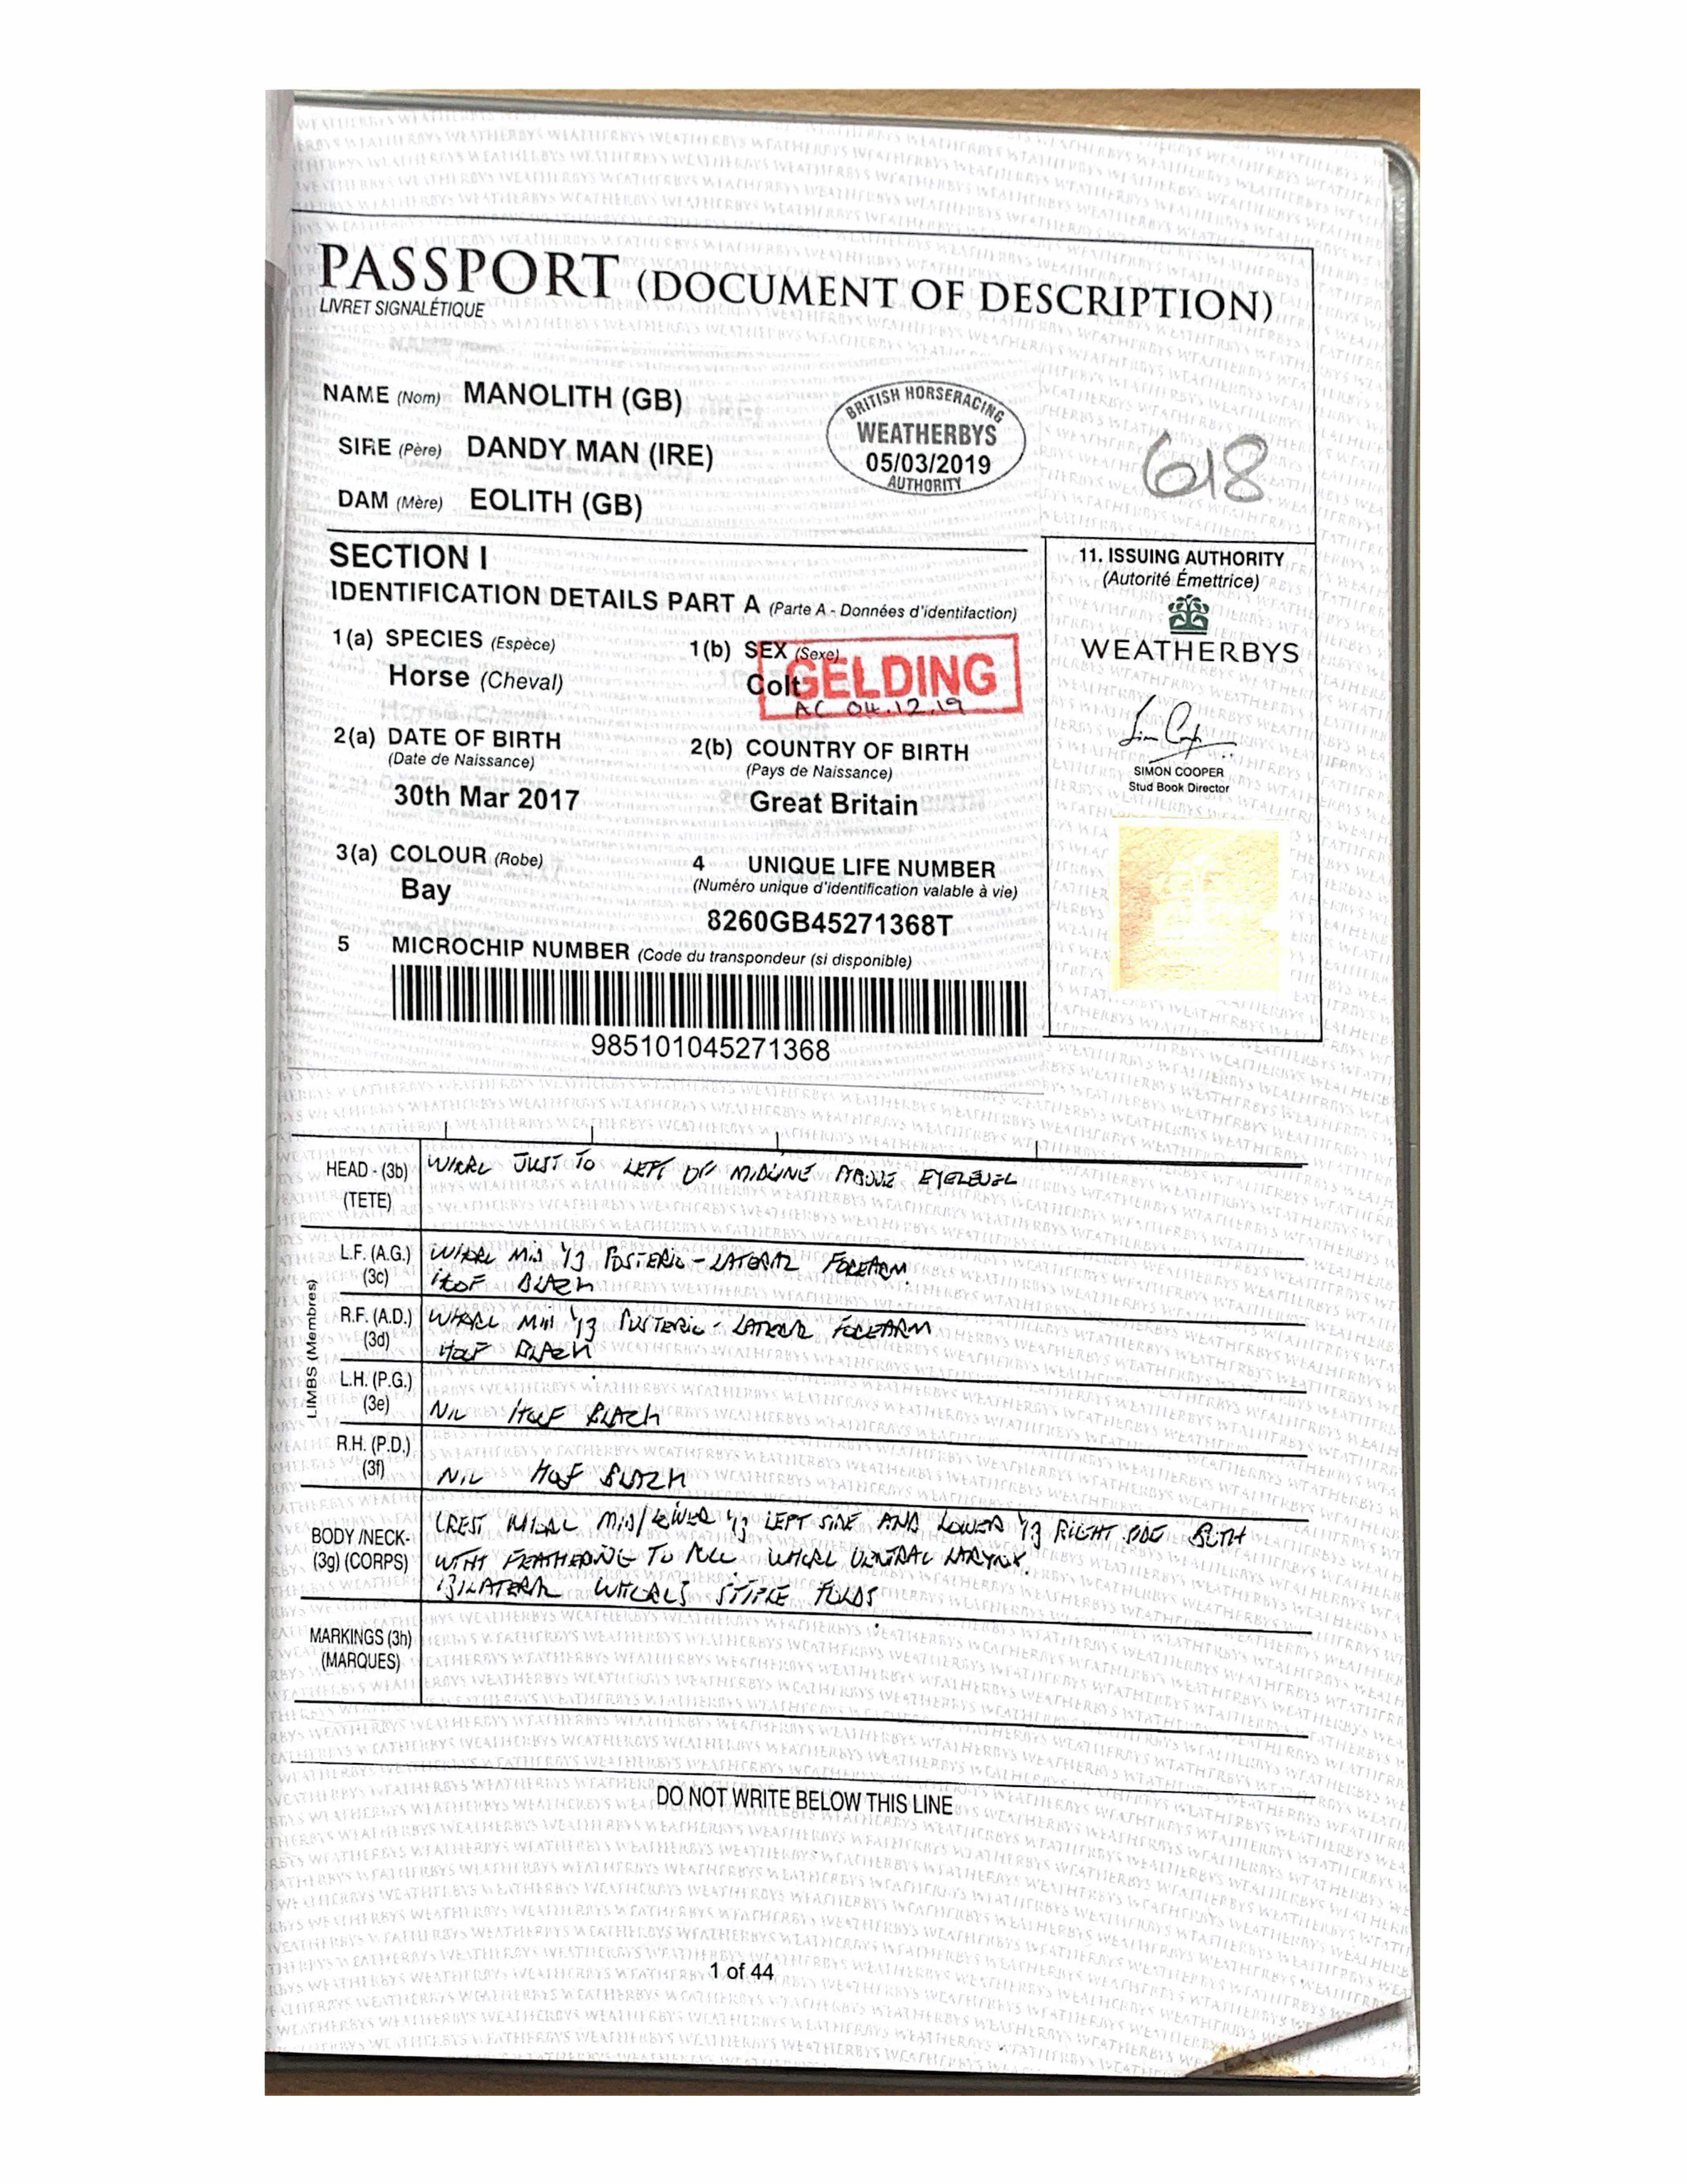 PASSPORT (DOCUMENT OF DESCRIPTION)
LIVRET SIGNALÉTIQUE
NAME (Nom) MANOLITH (GB)
SIRE (Père) DANDY MAN (IRE)
DAM (Mère) EOLITH (GB)
BRITISH HORSERACING
WEATHERBYS
05/03/2019
AUTHORITY
618
SECTION I
IDENTIFICATION DETAILS PART A (Parte A - Données d'identifaction)
1(a) SPECIES (Espèce)
Horse (Cheval)
1(b) SEX (Sexe)
Colt
GELDING
AC 04.12.19
2(a) DATE OF BIRTH
(Date de Naissance)
30th Mar 2017
2(b) COUNTRY OF BIRTH
(Pays de Naissance)
Great Britain
3(a) COLOUR (Robe)
Bay
4 UNIQUE LIFE NUMBER
(Numéro unique d'identification valable à vie)
8260GB45271368T
5 MICROCHIP NUMBER (Code du transpondeur (si disponible)
985101045271368
11. ISSUING AUTHORITY
(Autorité Émettrice)
WEATHERBYS
SIMON COOPER
Stud Book Director
HEAD - (3b)
(TETE)
WHORL JUST TO LEFT OF MIDLINE ABOVE EYELEVEL
LIMBS (Membres)
L.F. (A.G.)
(3c)
WHORL MID 1/3 POSTERIO-LATERAL FOREARM.
HOOF BLACK
R.F. (A.D.)
(3d)
WHORL MID 1/3 POSTERIO-LATERAL FOREARM
HOOF BLACK
L.H. (P.G.)
(3e)
NIL HOOF BLACK
R.H. (P.D.)
(3f)
NIL HOOF BLACK
BODY /NECK-
(3g) (CORPS)
CREST WHORL MID/LOWER 1/3 LEFT SIDE AND LOWER 1/3 RIGHT SIDE BOTH
WITH FEATHERING TO POLL. WHORL VENTRAL LARYNX.
BILATERAL WHORLS STIFLE FOLDS
MARKINGS (3h)
(MARQUES)
DO NOT WRITE BELOW THIS LINE
1 of 44